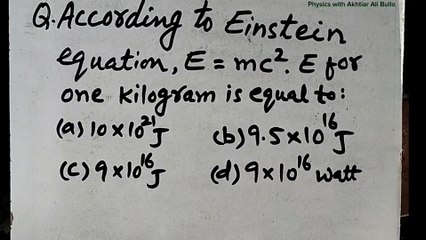 Physics with Akhtiar Ali Bullo
Q. According to Einstein
equation, E = mc². E for
one kilogram is equal to:
(a) 10×10²¹J (b) 9.5×10¹⁶J
(c) 9×10¹⁶J (d) 9×10¹⁶ watt